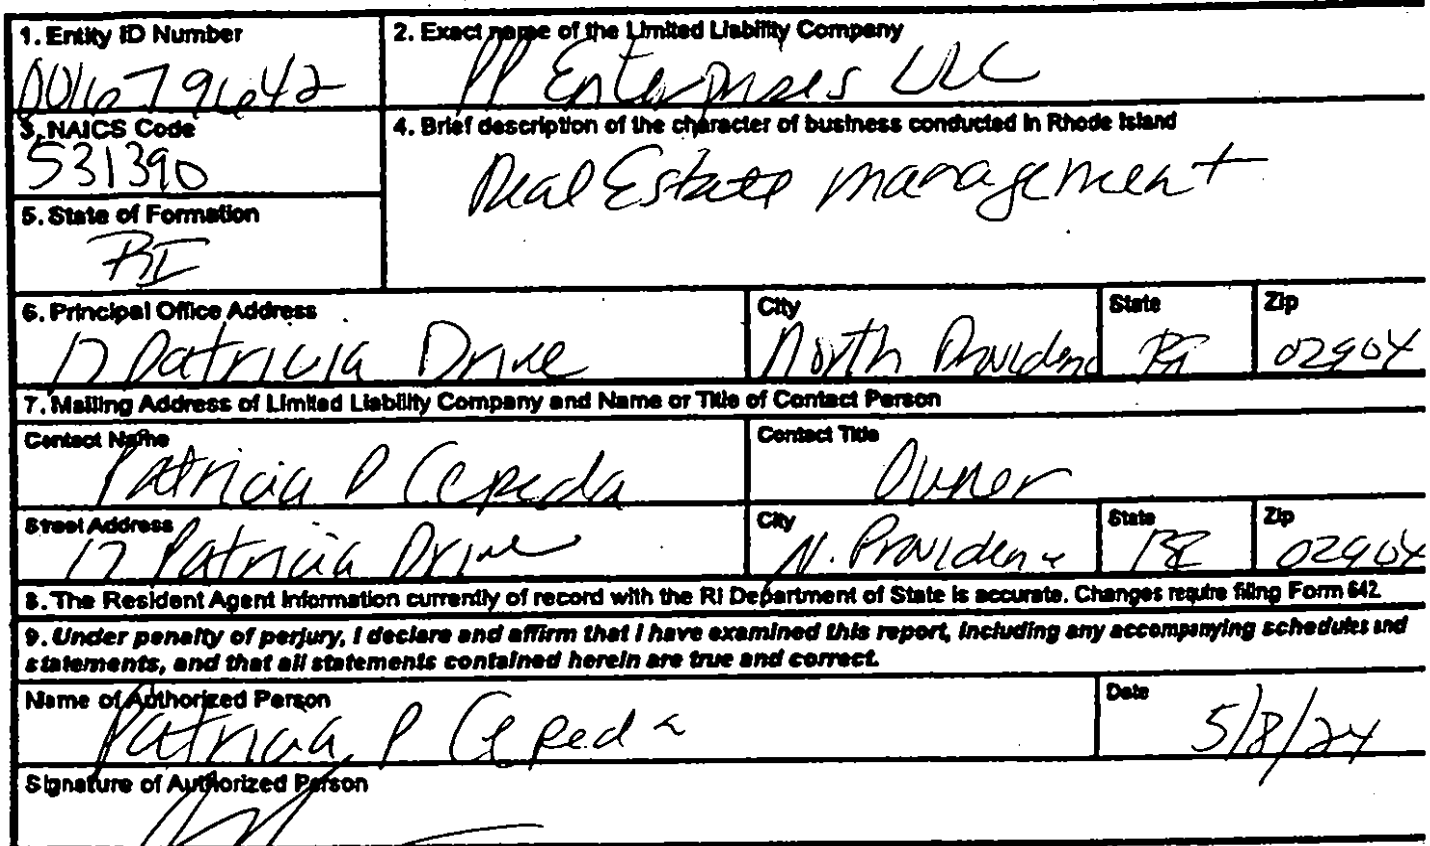 1. Entity ID Number
001679642
2. Exact name of the Limited Liability Company
PP Enterprises LLC
3. NAICS Code
531390
4. Brief description of the character of business conducted in Rhode Island
Real Estate management
5. State of Formation
RI
6. Principal Office Address
17 Patricia Drive
City
North Providence
State
RI
Zip
02904
7. Mailing Address of Limited Liability Company and Name or Title of Contact Person
Contact Name
Patricia P Cepeda
Contact Title
Owner
Street Address
17 Patricia Drive
City
N. Providence
State
RI
Zip
02904
8. The Resident Agent information currently of record with the RI Department of State is accurate. Changes require filing Form 642.
9. Under penalty of perjury, I declare and affirm that I have examined this report, including any accompanying schedules and
statements, and that all statements contained herein are true and correct.
Name of Authorized Person
Patricia P Cepeda
Date
5/8/24
Signature of Authorized Person